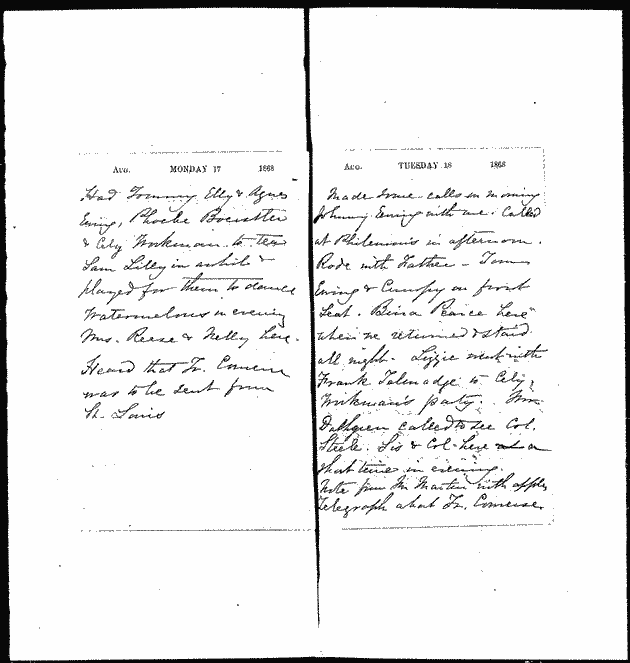 Aug. MONDAY 17 1868
Had Tommy, Elly & Agnes
Ewing, Phoebe
& City Workman to tea
Sam Lilly in awhile &
played for them to dance
Watermelons in evening
Mrs. Reese & Nelly here.
Heard that Fr.
was to be sent from
St. Louis
Aug. TUESDAY 18 1868
Made some calls in morning
Johnny Ewing with me. Called
at Philemon's in afternoon.
Rode with Father - Tom
Ewing & on front
Seat. Pearce here
when we returned & staid
all night. Lizzie went with
Frank Talmadge to City
Workman's party.
Dahlgren called to see Col.
Steele. Sis & Col. here a
short time in evening.
Note from Mr Martin with apples
Telegraph about Fr.